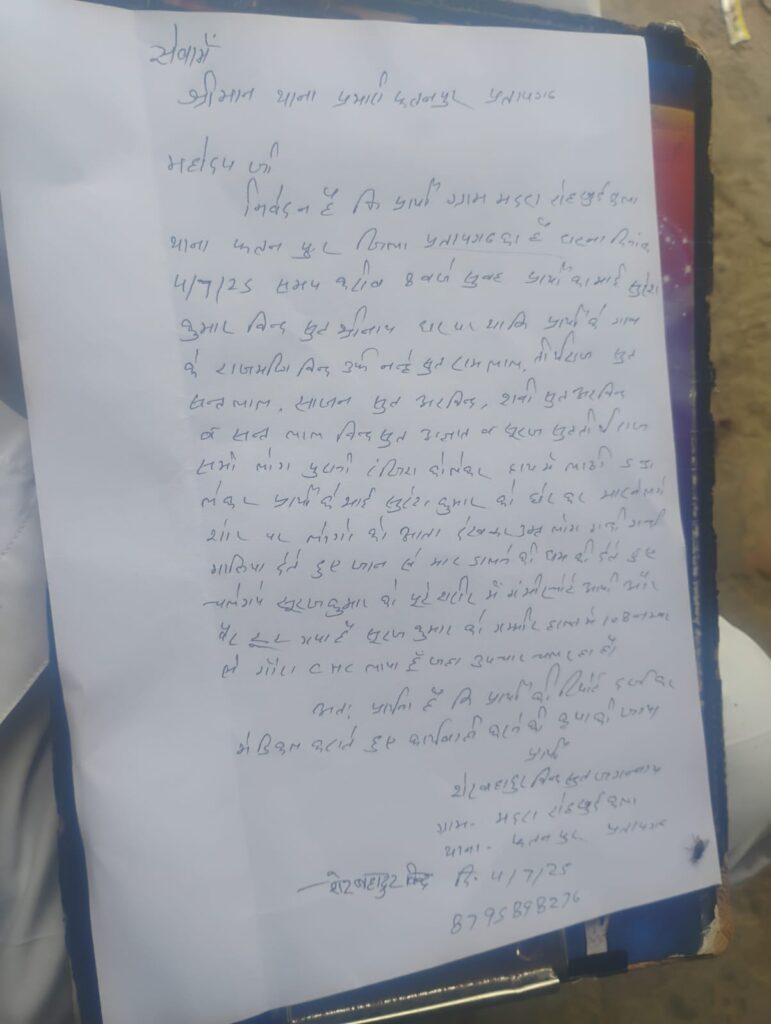 सेवामें
श्रीमान थाना प्रभारी फतनपुर प्रतापगढ
महोदय जी
निवेदन है कि प्रार्थी ग्राम
थाना फतन पुर जिला प्रतापगढका है घटना दिनांक
4/7/25 समय करीब 8 बजे सुबह प्रार्थी का भाई सुरेश
कुमार बिन्द सुत श्रीनाथ घर पर था कि प्रार्थी के गाम
के राजमणि बिन्द उर्फ नन्हे सुत रामलाल, तीर्थराज सुत
सन्तलाल, साजन सुत अरविन्द, सुत अरविन्द
व सन्त लाल बिन्द सुत अज्ञात व सूरज सुत तीर्थराज
सभी लोग पुरानी रंजिश को लेकर हाथ में लाठी डन्डा
लेकर प्रार्थी के भाई सुरेश कुमार को घेर कर मारने लगे
शोर पर लोगो को आता देखकर उक्त लोग गन्दी गन्दी
गालिया देते हुए जान से मार डालने की धमकी देते हुए
चलेगये सूरज कुमार को पूरे शरीर में गंभीर चोटे आयी और
पैर टूट गया है सूरज कुमार को गम्भीर हालत में 108 नम्बर
से गौरा CHC लाया हूँ जहा उपचार चल रहा है
अतः प्रार्थना है कि प्रार्थी की रिपोर्ट दर्ज कर
मेडिकल कराते हुए कार्यवाही करने की कृपा की जाय
प्रार्थी
शेरबहादुर बिन्द सुत जगन्नाथ
ग्राम-
थाना- फतन पुर प्रतापगढ
शेर बहादुर बिन्द दि. 4/7/25
8795898276